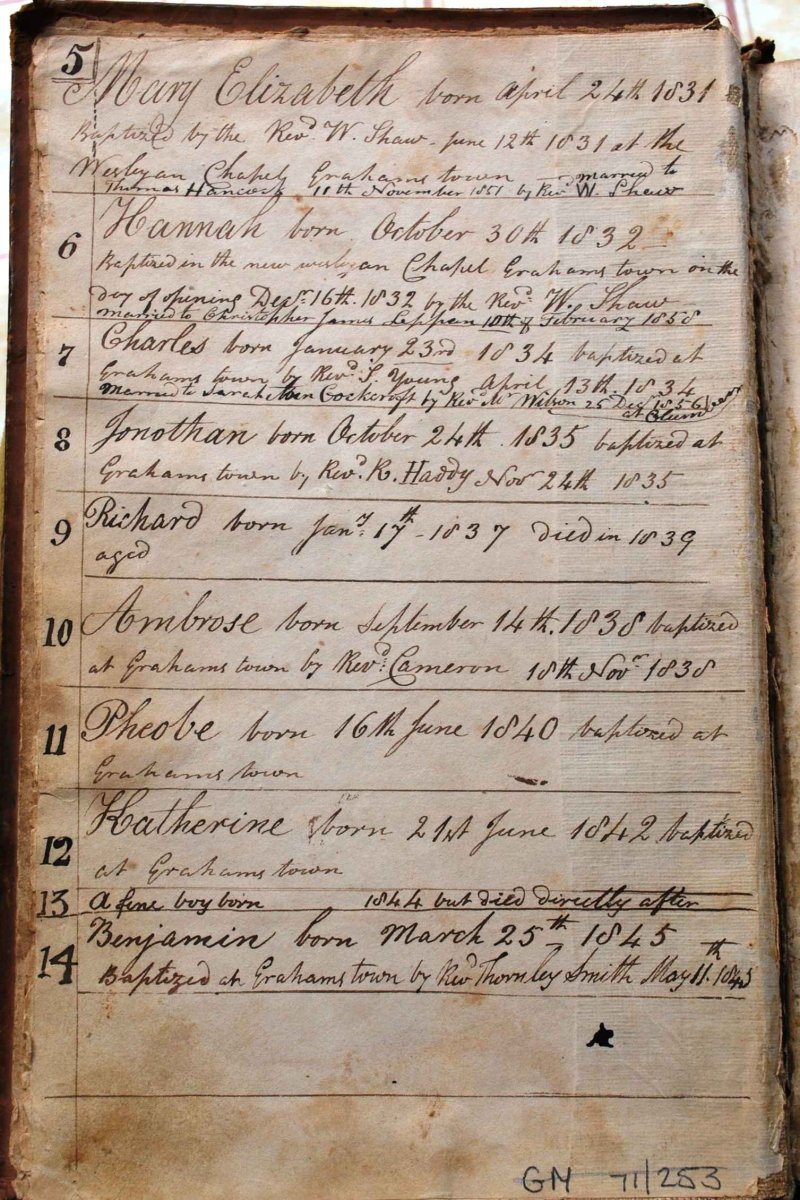 5 Mary Elizabeth born April 24th 1831
Baptized by the Revd. W. Shaw - June 12th 1831 at the
Wesleyan Chapel Grahams town - married to
Thomas Hancock 11th November 1851 by Rev W. Shaw
6 Hannah born October 30th 1832
Baptized in the new wesleyan Chapel Grahams town on the
day of opening Decr. 16th. 1832 by the Revd. W. Shaw
married to Christopher James Leppan 10th of February 1858
7 Charles born January 23rd 1834 baptized at
Grahams town by Revd. S. Young April 13th. 1834
Married to Sarah Ann Cockcroft by Revd Mr Wilson 25 Decr 1856
at
8 Jonothan born October 24th 1835 baptized at
Grahams town by Revd. R. Haddy Novr 24th 1835
9 Richard born Jany. 17th - 1837 died in 1839
aged
10 Ambrose born September 14th. 1838 baptized
at Grahams town by Revd: Cameron 18th Novr 1838
11 Pheobe born 16th June 1840 baptized at
Grahams town
12 Katherine born 21st June 1842 baptized
at Grahams town
13 A fine boy born 1844 but died directly after
14 Benjamin born March 25th 1845
Baptized at Grahams town by Revd Thornley Smith May 11th. 1845
GM 71/253